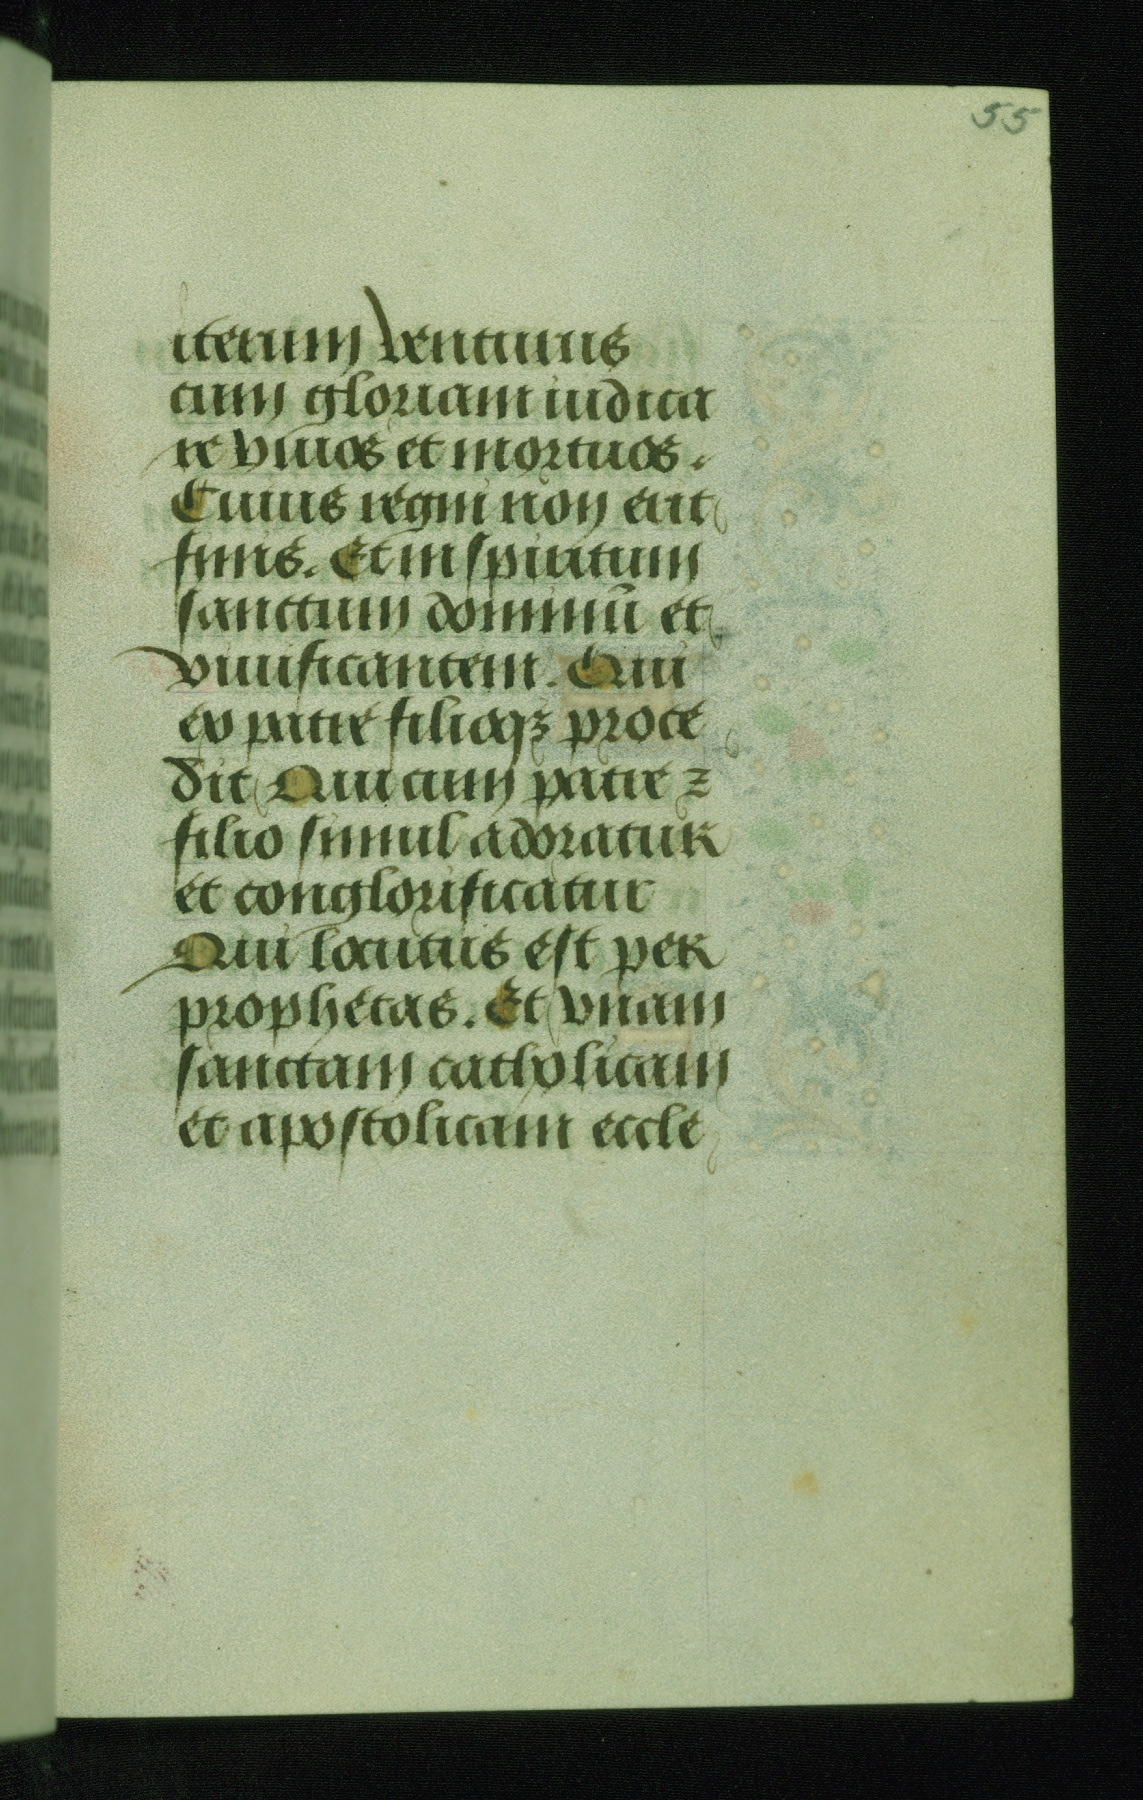 55
iterum venturus
cum gloriam iudica
re viuos et mortuos.
Cuius regni non erit
finis. Et in spiritum
sanctum dominū et
viuificantem. Qui
ex patre filioqꝫ proce
dit Qui cum patre ⁊
filio simul adoratur
et conglorificatur
Qui locutus est per
prophetas. Et vnam
sanctam catholicam
et apostolicam eccle